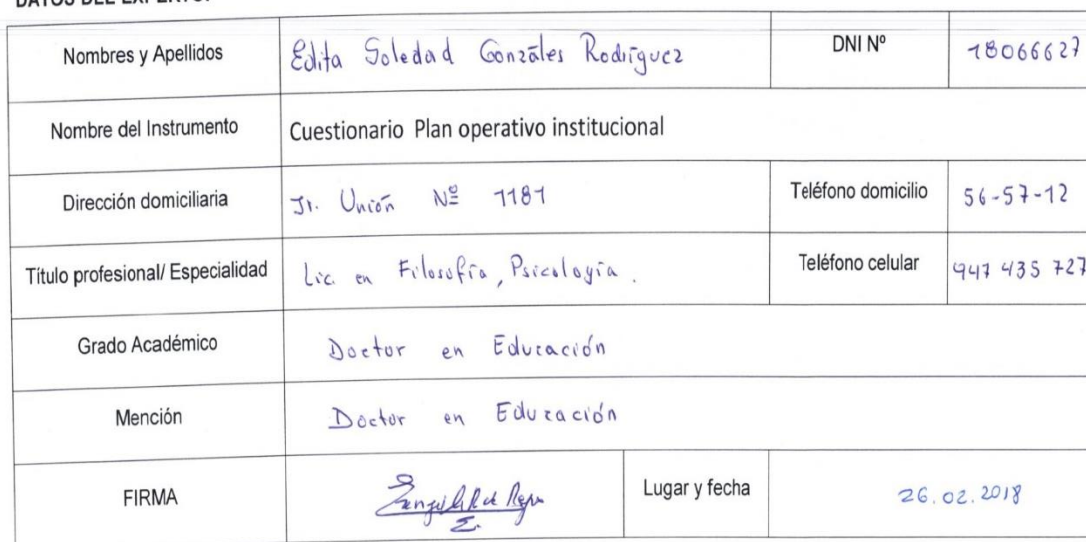 DATOS DEL EXPERTO:
Nombres y Apellidos Edita Soledad Gonzáles Rodríguez DNI Nº 18066627
Nombre del Instrumento Cuestionario Plan operativo institucional
Dirección domiciliaria Jr. Unión Nº 1181 Teléfono domicilio 56-57-12
Título profesional/ Especialidad Lic. en Filosofía, Psicología. Teléfono celular 947 435 727
Grado Académico Doctor en Educación
Mención Doctor en Educación
FIRMA Lugar y fecha 26.02.2018